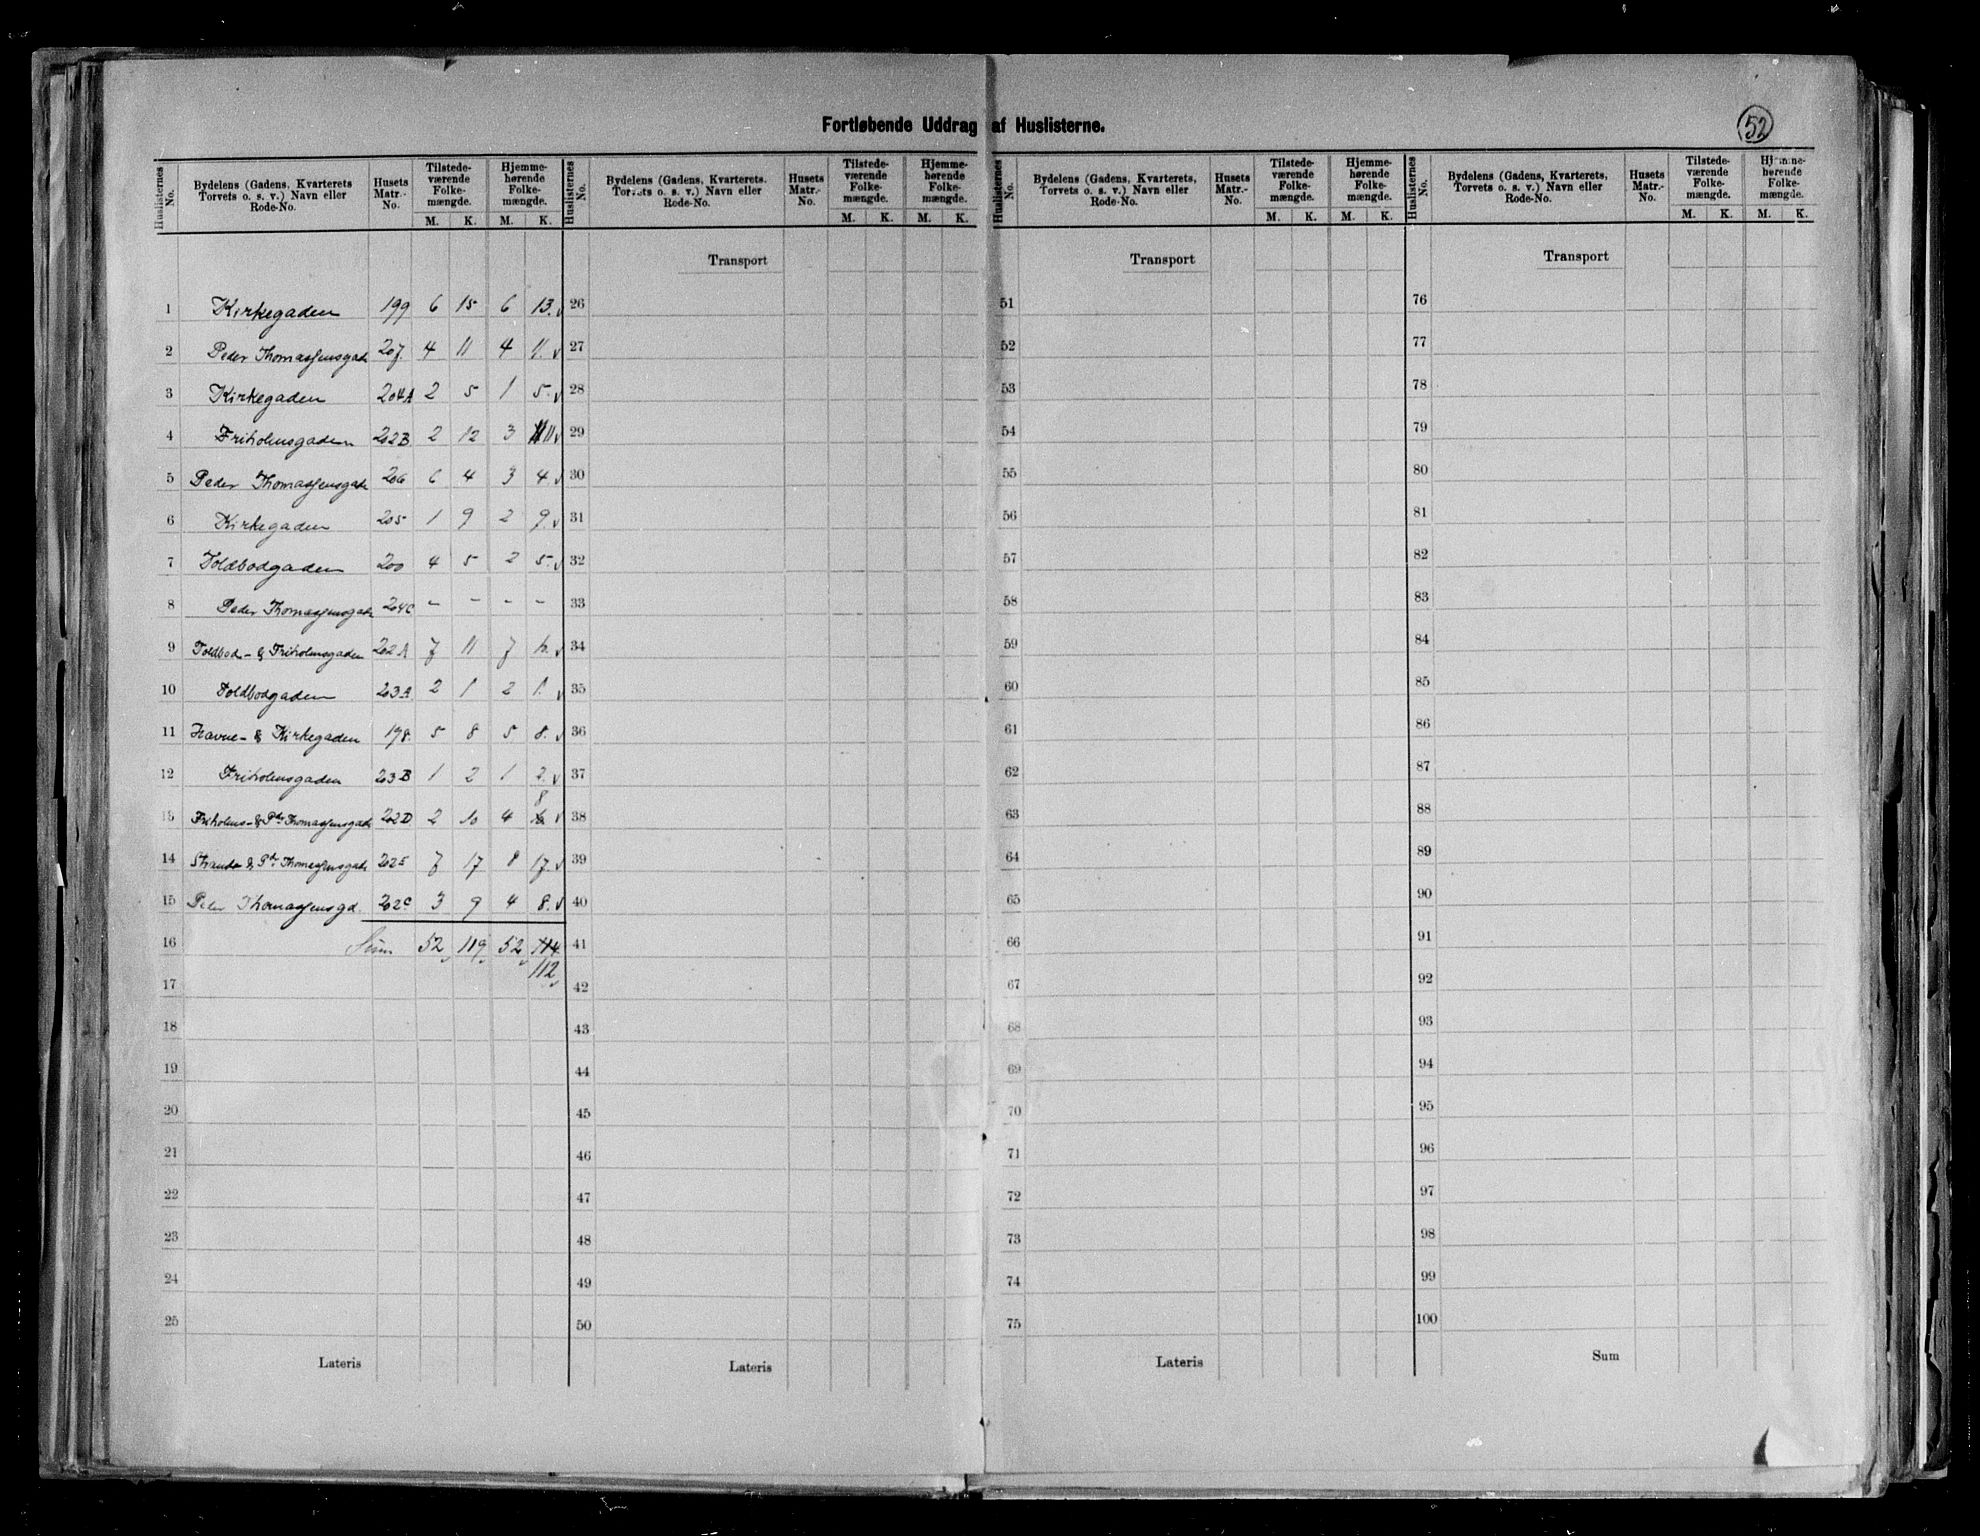 Fortløbende Uddrag af Huslisterne.
52
Huslisternes No. | Bydelens (Gadens, Kvarterets Torvets o. s. v.) Navn eller Rode-No. | Husets Matr.-No. | Tilstedeværende Folkemængde. M. K. | Hjemmehørende Folkemængde. M. K.
1 Kirkegaden 199 6 15 6 13. v
2 Peder Thomassensgade 207. 4 11 4 11. v
3 Kirkegaden 204A 2 5 1 5. v
4 Friholmsgaden 202B 2 12 3 11 v
5 Peder Thomassensgade 206 6 4 3 4 v
6 Kirkegaden 205 1 9 2 9. v
7 Toldbodgaden 200 4 5 2 5. v
8 Peder Thomassensgade 204C - - - -
9 Toldbod- & Friholmsgaden 202A 7 11 7 10. v
10 Toldbodgaden 203A 2 1 2 1. v
11 Havne- & Kirkegaden 198. 5 8 5 8. v
12 Friholmsgaden 203B 1 2 1 2. v
13 Friholms- & Pdr Thomassensgade 202D 2 10 4 10 8 v
14 Strand- & Pdr. Thomassensgade 202E 7 17 8 17. v
15 Peder Thomassensgd. 202C 3 9 4 8. v
16 Sum 52 119 52 114
112
17
18
19
20
21
22
23
24
25
Lateris
Huslisternes No. | Bydelens (Gadens, Kvarterets. Torvets o. s. v.) Navn eller Rode-No. | Husets Matr.-No. | Tilstedeværende Folkemængde. M. K. | Hjemmehørende Folkemængde. M. K.
Transport
26
27
28
29
30
31
32
33
34
35
36
37
38
39
40
41
42
43
44
45
46
47
48
49
50
Lateris
Huslisternes No. | Bydelens (Gadens, Kvarterets, Torvets o. s. v.) Navn eller Rode-No. | Husets Matr.-No. | Tilstedeværende Folkemængde. M. K. | Hjemmehørende Folkemængde. M. K.
Transport
51
52
53
54
55
56
57
58
59
60
61
62
63
64
65
66
67
68
69
70
71
72
73
74
75
Lateris
Huslisternes No. | Bydelens (Gadens, Kvarterets, Torvets o. s. v.) Navn eller Rode-No. | Husets Matr.-No. | Tilstedeværende Folkemængde. M. K. | Hjemmehørende Folkemængde. M. K.
Transport
76
77
78
79
80
81
82
83
84
85
86
87
88
89
90
91
92
93
94
95
96
97
98
99
100
Sum